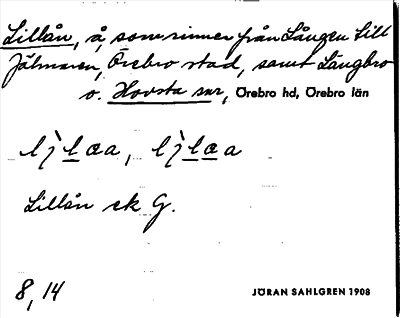 Lillån, å, som rinner från Lången till
Hjälmaren, Örebro stad, samt Längbro
o. Hovsta snr, Örebro hd, Örebro län
Lillån ek G.
8, 14
JÖRAN SAHLGREN 1908